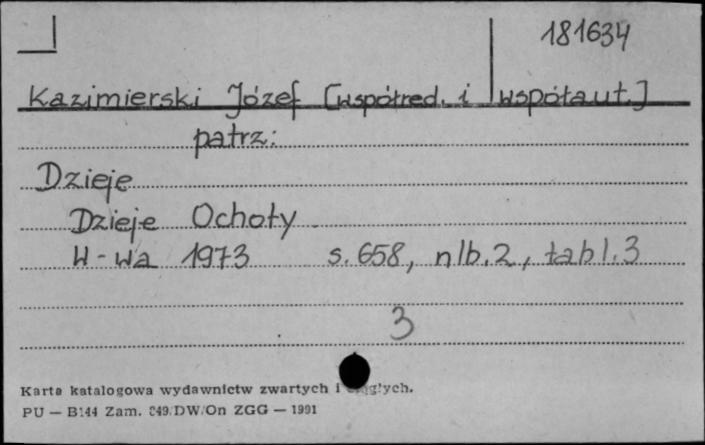 181634
Kazimierski Józef [współred. i współaut.]
patrz:
Dzieje
Dzieje Ochoty
W-wa 1973 s. 658, nlb. 2, tabl. 3
3
Karta katalogowa wydawnictw zwartych i ciągłych.
PU — B144 Zam. 849/DW/On ZGG — 1991